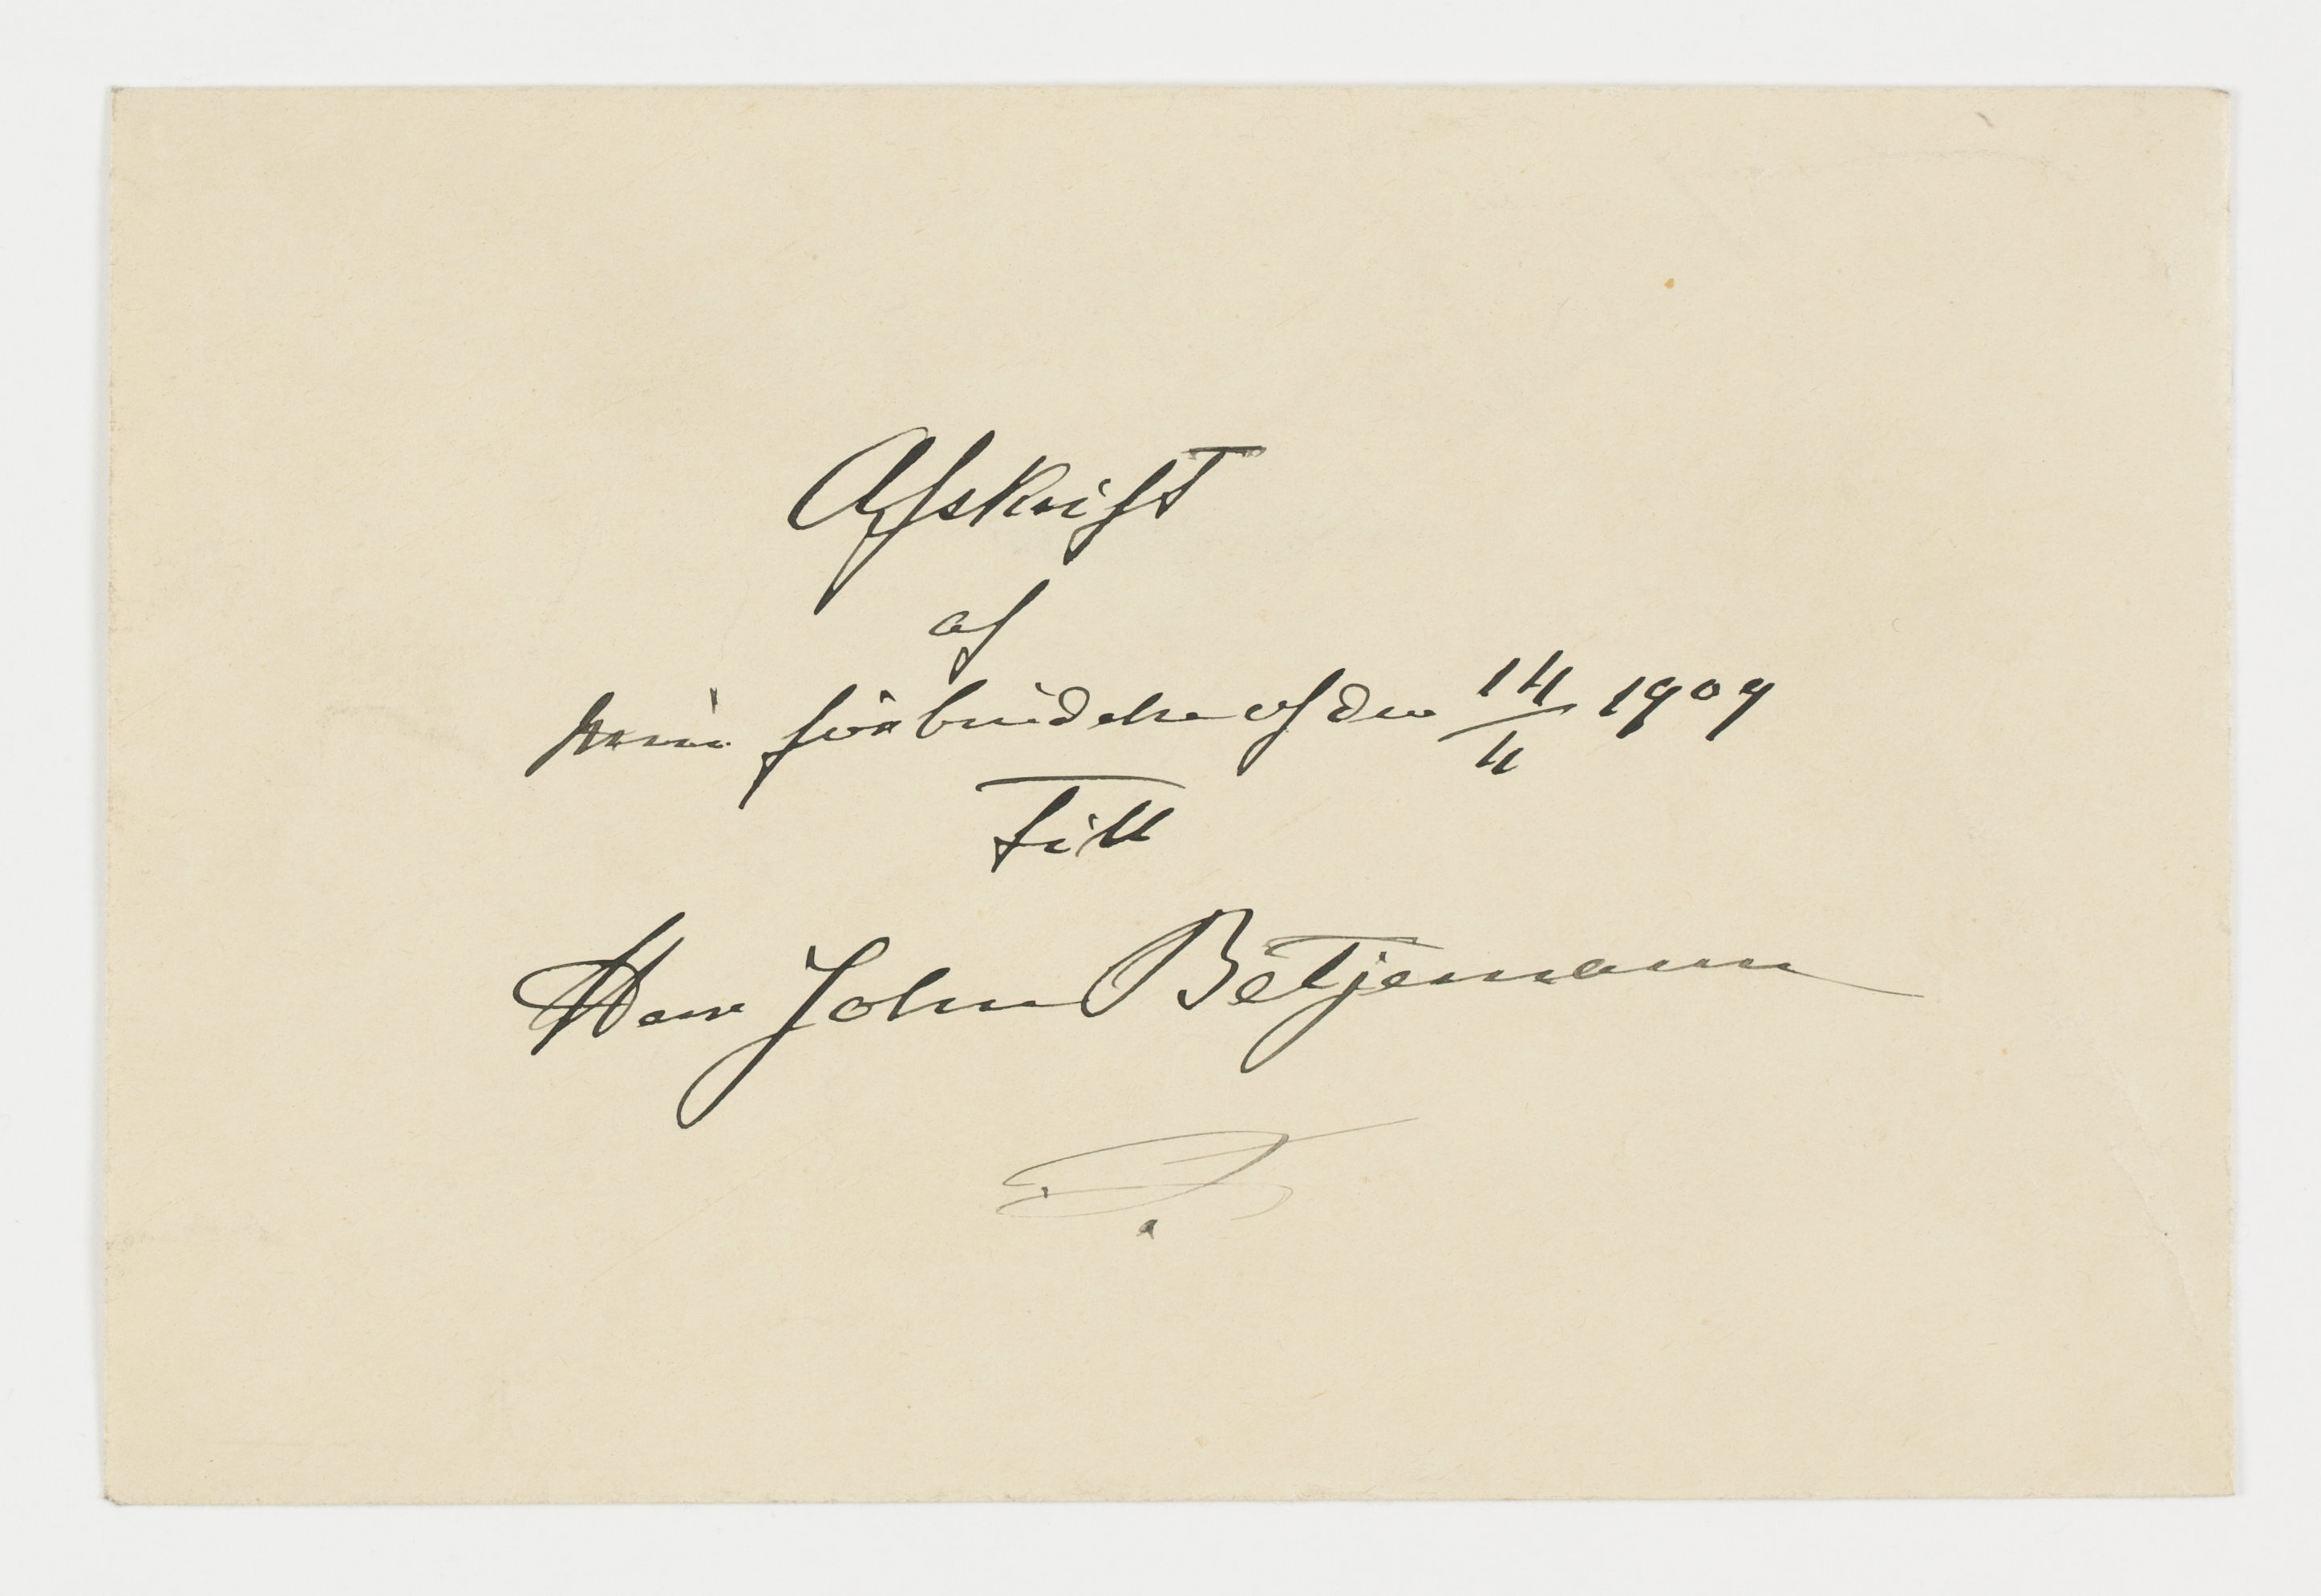 Afskrift
af
min förbindelse af den 14/11 1909
Till
Herr John Betjemann